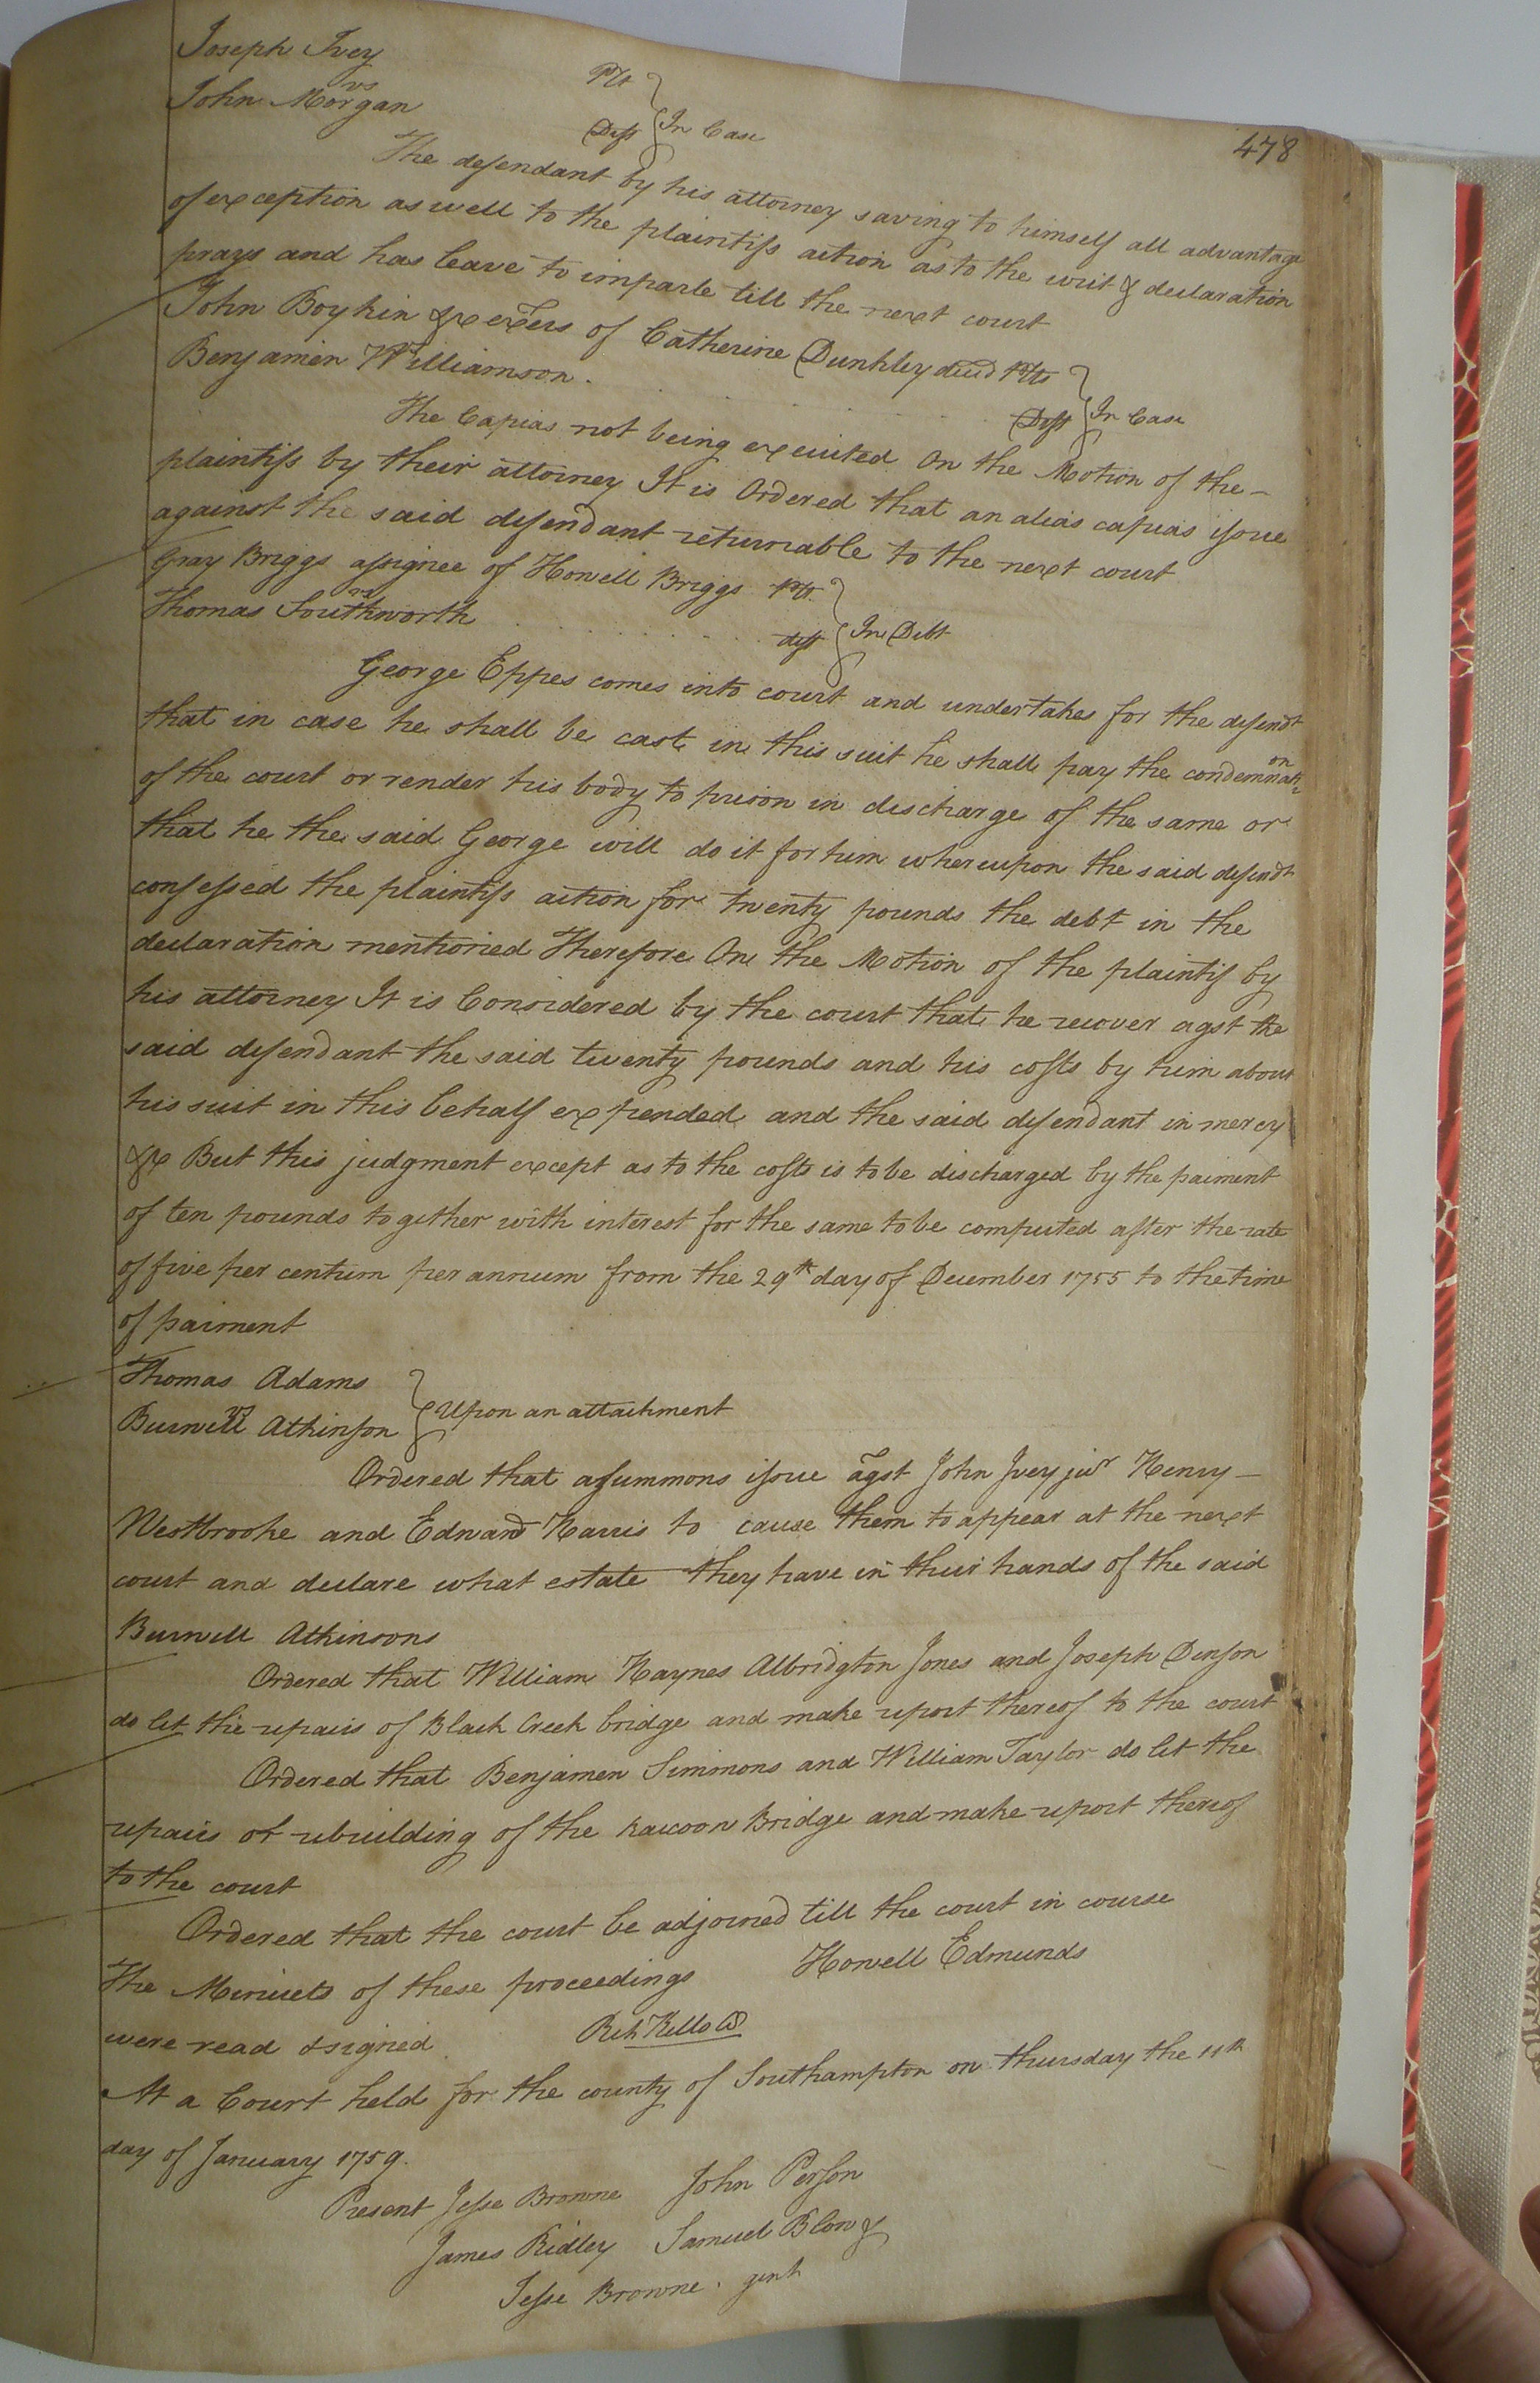 478
Joseph Ivey Plt
vs
John Morgan Deft In Case
The defendant by his attorney saving to himself all advantage
of exception as well to the plaintifs action as to the writ & declaration
prays and has leave to imparle till the next court
John Boykin &c exers of Catherine Dunkley decd Plts
vs
Benjamin Williamson Deft In Case
The Capias not being executed On the Motion of the
plaintifs by their attorney It is Ordered that an alias capias issue
against the said defendant returnable to the next court
Gray Briggs assignee of Howell Briggs Plt.
vs
Thomas Southworth deft In Debt
George Eppes comes into court and undertakes for the defendt
that in case he shall be cast in this suit he shall pay the condemnation
of the court or render his body to prison in discharge of the same or
that he the said George will do it for him whereupon the said defendt
confessed the plaintifs action for twenty pounds the debt in the
declaration mentioned Therefore On the Motion of the plaintif by
his attorney It is Considered by the court that he recover agst the
said defendant the said twenty pounds and his costs by him about
his suit in this behalf expended and the said defendant in mercy
&c But this judgment except as to the costs is to be discharged by the paiment
of ten pounds together with interest for the same to be computed after the rate
of five per centum per annum from the 29th day of December 1755 to the time
of paiment
Thomas Adams
vs
Burwell Atkinson Upon an attachment
Ordered that a summons issue agst John Ivey junr Henry
Westbrooke and Edward Harris to cause them to appear at the next
court and declare what estate they have in their hands of the said
Burwell Atkinsons
Ordered that William Haynes Albridgton Jones and Joseph Denson
do let the repairs of Black Creek bridge and make report thereof to the court
Ordered that Benjamen Simmons and William Taylor do let the
repairs or rebuilding of the Raccoon Bridge and make report thereof
to the court
Ordered that the court be adjorned till the court in course
The Minuets of these proceedings Howell Edmunds
were read & signed Rich Kello Cl
At a Court held for the county of Southampton on thursday the 11th
day of January 1759.
Present Jesse Browne John Person
James Ridley Samuel Blow &
Jesse Browne. gent